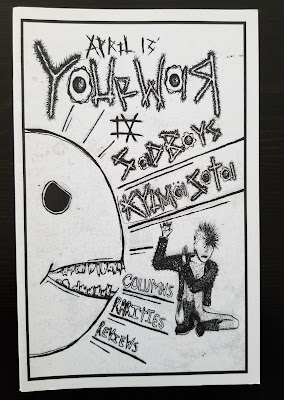 APRIL 13'
YOUR WAR
IX
SADBOYS
KYLMÄ SOTA
COLUMNS
RARITIES
REVIEWS